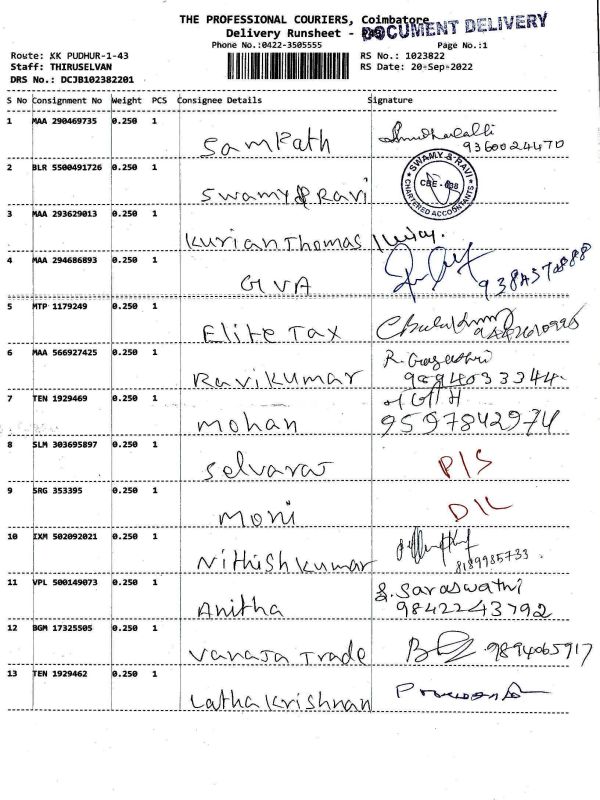 THE PROFESSIONAL COURIERS, Coimbatore
DOCUMENT DELIVERY
Delivery Runsheet -
Phone No.:0422-3505555
Page No.:1
Route: KK PUDHUR-1-43
RS No.: 1023822
Staff: THIRUSELVAN
RS Date: 20-Sep-2022
DRS No.: DCJB102382201
S No Consignment No Weight PCS Consignee Details Signature
1 MAA 290469735 0.250 1
Sampath
9360024470
2 BLR 5500491726 0.250 1
Swamy & Ravi
SWAMY & RAVI
CBE - 038
CHARTERED ACCOUNTANTS
3 MAA 293629013 0.250 1
Kurian Thomas
4 MAA 294686893 0.250 1
GVA
5 MTP 1179249 0.250 1
Elite Tax
6 MAA 566927425 0.250 1
Ravikumar
9894033344
7 TEN 1929469 0.250 1
mohan
9597842974
8 SLM 303695897 0.250 1
Selvaraj P/S
9 SRG 353395 0.250 1
moni D/L
10 IXM 502092021 0.250 1
Nithish kumar
8189985733
11 VPL 500149073 0.250 1
Anitha
S. Saraswathi
9842243792
12 BGM 17325505 0.250 1
Vanaja Trade 9894065917
13 TEN 1929462 0.250 1
Latha Krishnan